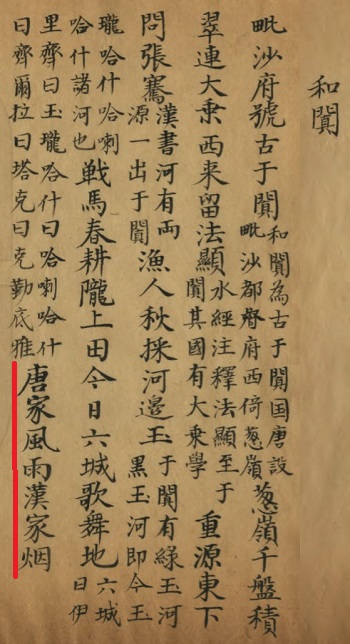 和闐
毗沙府號古于闐和闐為古于闐国唐設毗沙都督府西倚葱嶺葱嶺千盤積
翠連大乘西来留法顯水經注釋法顯至于闐其國有大乘學重源東下
問張騫漢書河有两源一出于闐漁人秋採河邊玉于闐有綠玉河黑玉河即今玉
瓏哈什哈喇哈什諸河也戦馬春耕隴上田今日六城歌舞地六城曰伊
里齊曰玉瓏哈什曰哈喇哈什曰齊爾拉曰塔克曰克勤底雅唐家風雨漢家烟